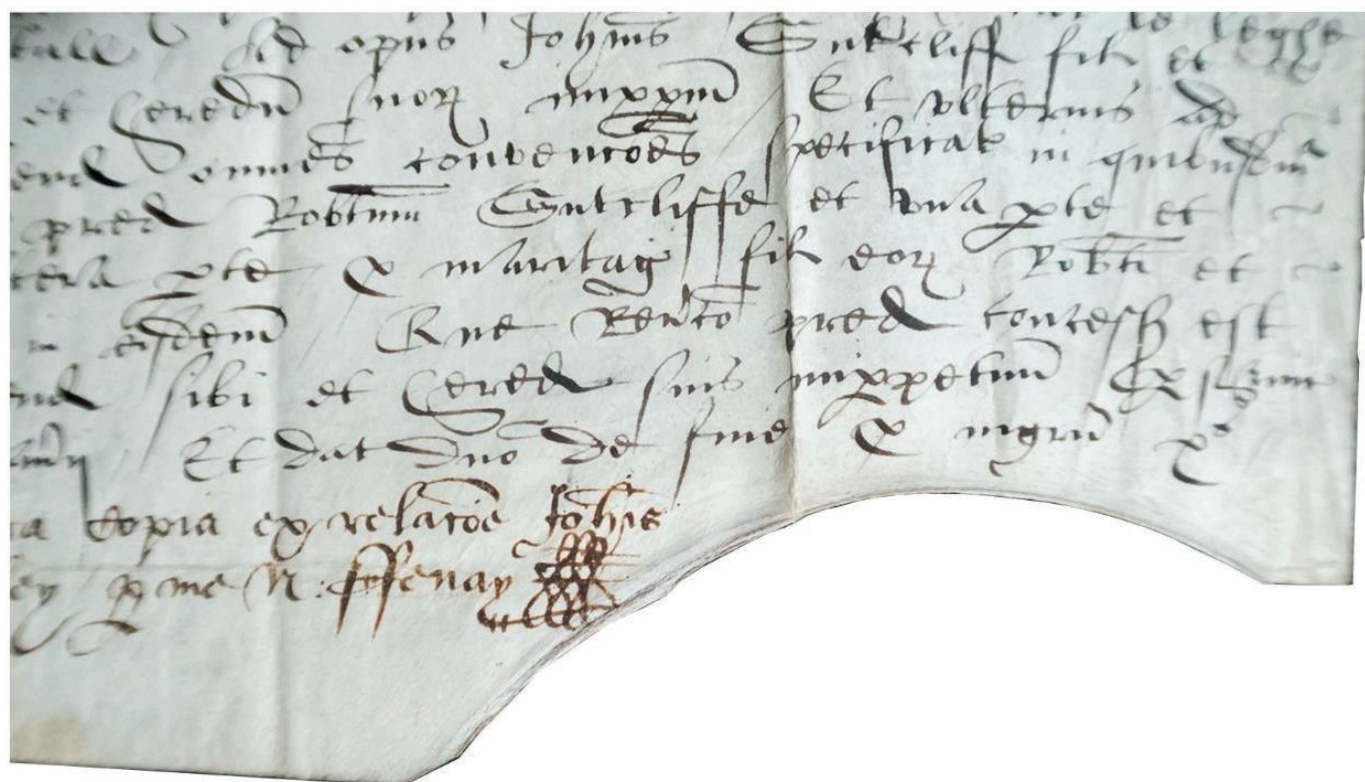 ad opus Joh̄is Sutcliff fil et
et hered̄ suor̄ imppm̄ Et ulterius ad
omnes convencōes specificat in quibusdm̄
pred Rob̄tum Sutcliffe et una pte et
pte p maritag fil eor̄ Rob̄ti et
in eisdem̄ Que Revc̄o pred concess est
end sibi et hered suis imppetuū Ex
Et dat dn̄o de fine p ingrū
copia ex relac̄oe Joh̄is
ey p me N: ffenay